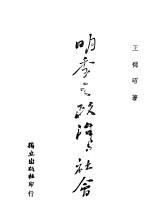 王錫昌著
明季之政治與社會
獨立出版社印行